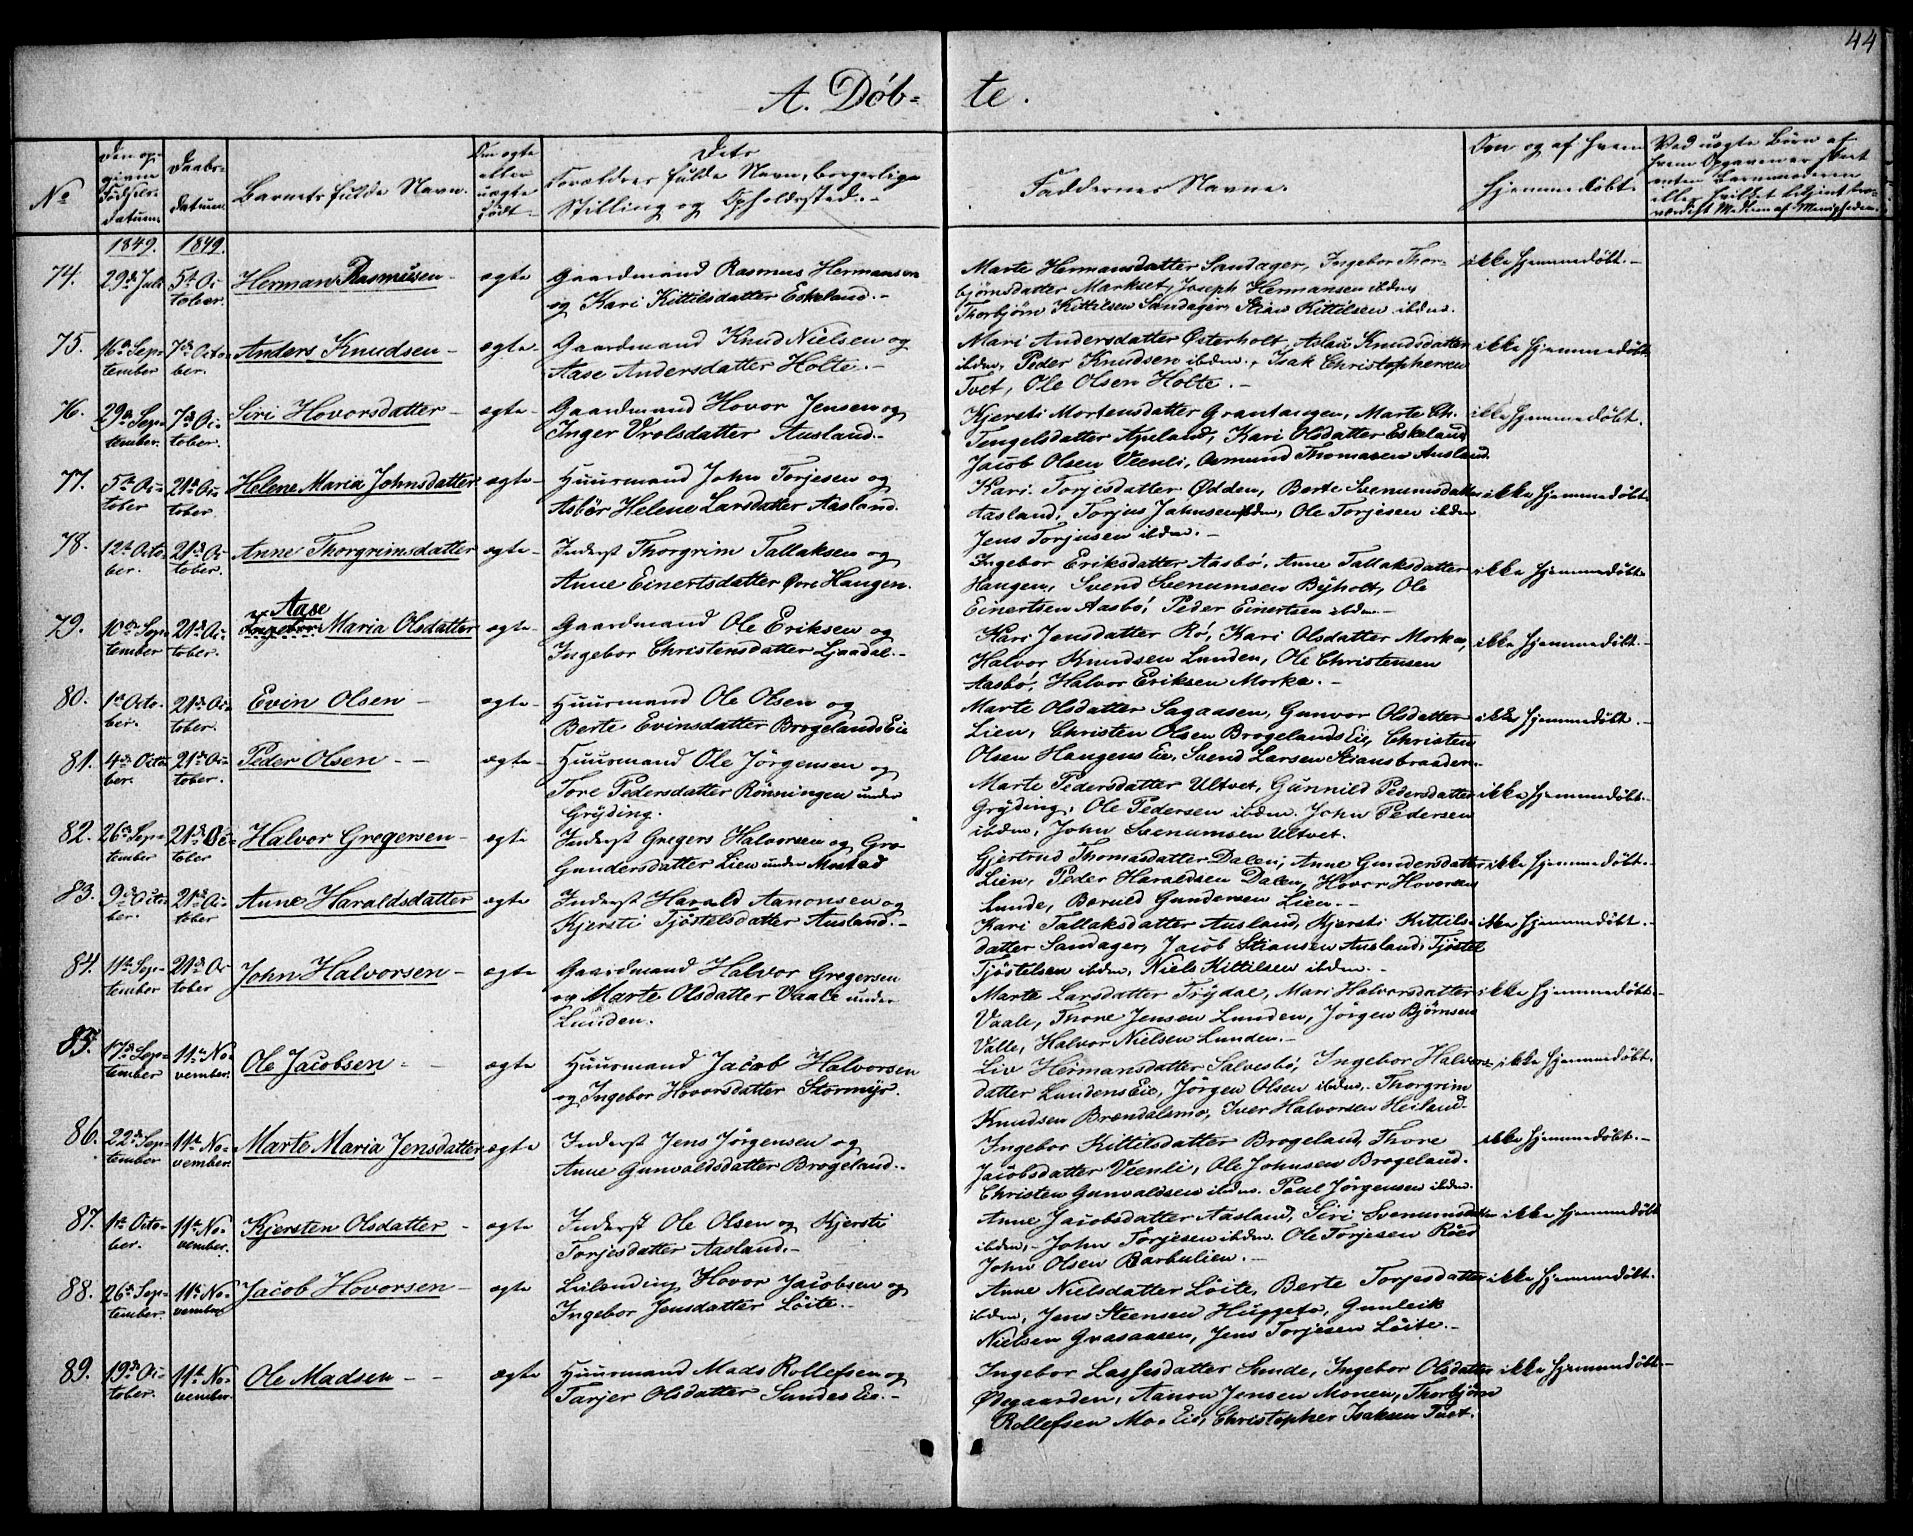 44
A. Døb= te.
No
Den op-
given
Fødsels-
datum
Daabs-
datum
Barnets fulde Navn.
Om ægte
eller
uægte
født.
Dets
Forældres fulde Navn, borgerlige
Stilling og Opholdssted.
Faddernes Navne.
Om og af hvem
hjemmedøbt.
Ved uægte Børn af
hvem Opgaven er skeet
enten Barnemoderen
eller hvilket bekjent tro-
værdigt Medlem af Menigheden.
1849. 1849.
74. 29de Juli 5te Oc- Herman Rasmusen ægte Gaardmand Rasmus Hermansen
tober. og Kari Kittilsdatter Eskeland.
Marte Hermansdatter Sandager, Ingebor Thor-
bjørnsdatter Markset, Joseph Hermansen ibdm,
Thorbjørn Kittilsen Sandager, Stian Kittilsen ibdm.
ikke hjemmedøbt.
75. 16de Sep- 7de Octo- Anders Knudsen ægte Gaardmand Knud Nielsen og
tember ber. Aase Andersdatter Holte.
Mari Andersdatter Østerholt, Aslau Knudsdatter
ibdm, Peder Knudsen ibdm, Isak Christophersen
Tvet, Ole Olsen Holte.
ikke hjemmedøbt
76. 29de Sep- 7de Oc- Siri Hovorsdatter ægte Gaardmand Hovor Jensen og
tember. tober. Inger Vrolsdatter Ausland.
Kjersti Mortensdatter Grantangen, Marte Ch.
Tengelsdatter Apeland, Kari Olsdatter Eskeland
Jacob Olsen Veenli, Osmund Thomasen Ausland.
ikke hjemmedøbt.
77. 5te Oc- 21de Oc- Helene Maria Johnsdatter ægte Huusmand John Torjesen og
tober tober. Asbør Helene Larsdatter Aasland.
Kari Torjesdatter Ødden, Berte Svenumsdatter
Aasland, Torjus Johnsen ibdm, Ole Torjesen ibdm
Jens Torjusen ibdm.
ikke hjemmedøbt
78. 12te Octo- 21de Oc- Anne Thorgrimsdatter ægte Inderst Thorgrim Tallaksen og
ber. tober. Anne Einertsdatter Øvre Haugen.
Ingebor Eriksdatter Aasbø, Anne Tallaksdatter
Haugen, Svend Svenumsen Byholt, Ole
Einertsen Aasbø, Peder Einertsen ibdm.
ikke hjemmedøbt
Aase
79. 10de Sep- 21de Oc- Ingebor Maria Olsdatter ægte Gaardmand Ole Eriksen og
tember tober. Ingebor Christensdatter Ljaadal.
Kari Jensdatter Rø, Kari Olsdatter Morka,
Halvor Knudsen Lunden, Ole Christensen
Aasbø, Halvor Eriksen Morka.
ikke hjemmedøbt.
80. 1te Octo- 21de Oc- Evin Olsen ægte Huusmand Ole Olsen og
ber. tober. Berte Evinsdatter Brogelands Eie
Marte Olsdatter Sagaasen, Gunvor Olsdatter
Lien, Christen Olsen Brogelands Eie, Christen
Olsen Haugens Eie, Svend Larsen Stiansbraaden.
ikke hjemmedøbt.
81. 4de Octo- 21de Oc- Peder Olsen ægte Huusmand Ole Jörgensen og
ber. tober. Tore Pedersdatter Rönningen under
Gryding.
Marte Pedersdatter Ultvet, Gunnild Pedersdatter
Gryding, Ole Pedersen ibdm. John Pedersen
ibdm, John Svenumsen Ultvet.
ikke hjemmedøbt.
82. 26de Sep- 21de Oc- Halvor Gregersen ægte Inderst Gregers Halvorsen og Gro
tember tober Gundersdatter Lien under Mostad
Gjertrud Thomasdatter Dalen, Anne Gundersdatter
Lien, Peder Haraldsen Dalen, Hovor Hovorsen
Lunde, Beruld Gundersen Lien.
ikke hjemmedøbt.
83. 9de Octo- 21de Oc- Anne Haraldsdatter ægte Inderst Harald Aanonsen og
ber. tober Kjersti Tjöstelsdatter Ausland.
Kari Tallaksdatter Ausland, Kjersti Kittils-
datter Sandager, Jacob Stiansen Ausland, Tjöstel
Tjöstelsen ibdm, Niels Kittilsen ibdm.
ikke hjemmedøbt.
84. 11te Sep- 21de Oc- John Halvorsen ægte Gaardmand Halvor Gregersen
tember tober og Marte Olsdatter Vaale under
Lunden.
Marte Larsdatter Trydal, Mari Halvorsdatter
Vaale, Thore Jensen Lunden, Jörgen Bjørnsen
Valle, Halvor Nielsen Lunden.
ikke hjemmedøbt.
85. 17de Sep- 11te No- Ole Jacobsen ægte Huusmand Jacob Halvorsen
tember vember. og Ingebor Hovorsdatter Stormyr.
Liv Hermansdatter Salvesbø, Ingebor Halvors-
datter Lundens Eie, Jörgen Olsen ibdm, Thorgrim
Knudsen Brændalsmo, Iver Halvorsen Heiland.
ikke hjemmedøbt.
86. 22de Sep- 11te No- Marte Maria Jensdatter ægte Inderst Jens Jörgensen og
tember vember. Anne Gunvaldsdatter Brogeland.
Ingebor Kittilsdatter Brogeland, Thore
Jacobsdatter Veenli, Ole Johnsen Brogeland.
Christen Gunvaldsen ibdm. Poul Jörgensen ibdm.
ikke hjemmedøbt.
87. 1te Octo- 11te No- Kjersten Olsdatter ægte Inderst Ole Olsen og Kjersti
ber. vember. Torjesdatter Aasland.
Anne Jacobsdatter Aasland, Siri Svenumsdatter
ibdm, John Torjesen ibdm. Ole Torjesen Röed
John Olsen Barbulien.
ikke hjemmedøbt
88. 26de Sep- 11te No- Jacob Hovorsen ægte Leilending Hovor Jacobsen og
tember. vember Ingebor Jensdatter Löite.
Anne Nielsdatter Löite, Berte Torjesdatter
ibdm, Jens Steensen Huggefo, Gunleik
Nielsen Grasaasen, Jens Torjesen Löite.
ikke hjemmedøbt.
89. 19de Oc- 11te No- Ole Madsen ægte Huusmand Mads Rollefsen og
tober. vember. Tarjer Olsdatter Sundes Eie.
Ingebor Lassesdatter Sunde, Ingebor Olsdatter
Ødegaarden, Aanon Jensen Monen, Thorbjörn
Rollefsen Mo-Eie, Christopher Isaksen Tvet.
ikke hjemmedøbt